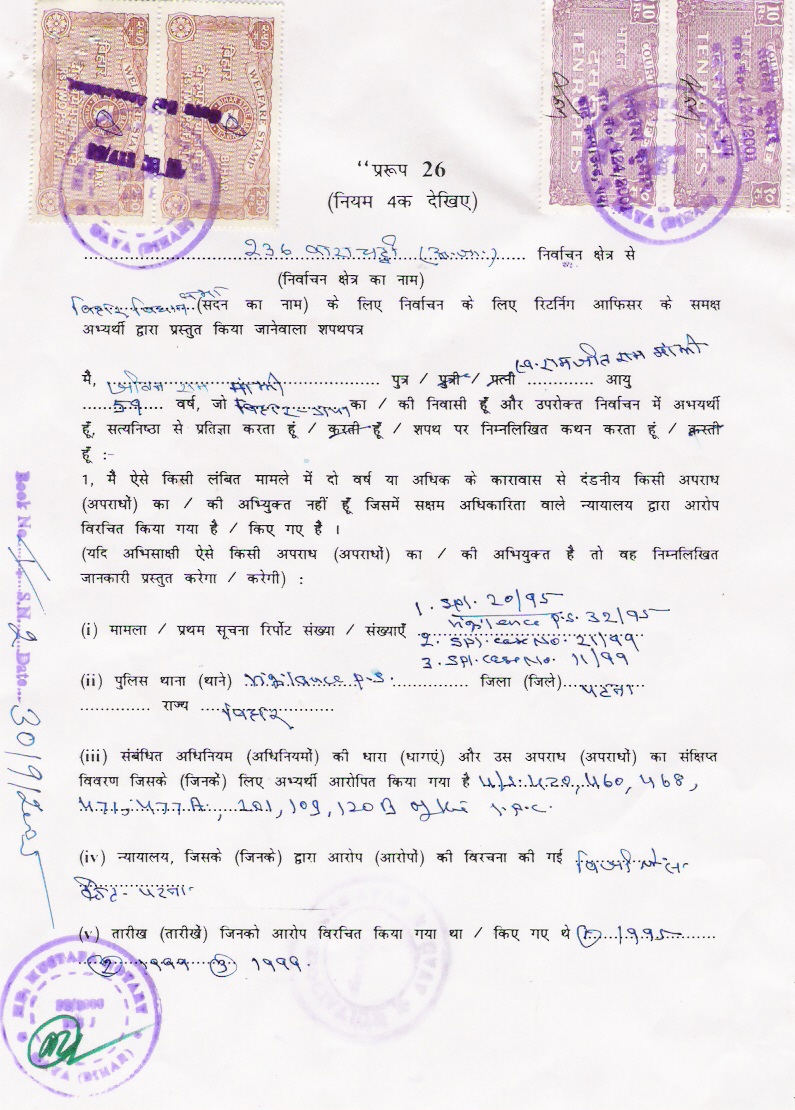 WELFARE STAMP
BIHAR
WELFARE STAMP
BIHAR
COURT FEE
TEN RUPEES
TEN RUPEES
"प्ररूप 26
(नियम 4क देखिए)
236 बाराचट्टी (अ.जा.) निर्वाचन क्षेत्र से
(निर्वाचन क्षेत्र का नाम)
बिहार विधान सभा (सदन का नाम) के लिए निर्वाचन के लिए रिटर्निग आफिसर के समक्ष
अभ्यर्थी द्वारा प्रस्तुत किया जानेवाला शपथपत्र
मै, जीतन राम मांझी पुत्र / पुत्री / प्रत्नी स्व. रामजीत राम मांझी आयु
59 वर्ष, जो का / की निवासी हूँ और उपरोक्त निर्वाचन में अभयर्थी
हूँ, सत्यनिष्ठा से प्रतिज्ञा करता हूं / करती हूँ / शपथ पर निम्नलिखित कथन करता हूं / करती
हूँ :-
1, मै ऐसे किसी लंबित मामले में दो वर्ष या अधिक के कारावास से दंडनीय किसी अपराध
(अपराधों) का / की अभ्यिुक्त नहीं हूँ जिसमें सक्षम अधिकारिता वाले न्यायालय द्वारा आरोप
विरचित किया गया है / किए गए है ।
(यदि अभिसाक्षी ऐसे किसी अपराध (अपराधों) का / की अभियुक्त है तो वह निम्नलिखित
जानकारी प्रस्तुत करेगा / करेगी) :
1. Spl. 20/95
Vigilence P.S. 32/95
(i) मामला / प्रथम सूचना रिर्पोट संख्या / संख्याएँ
2. Spl. case No. 21/99
3. Spl. case No. 11/99
(ii) पुलिस थाना (थाने) Vigilance P.S. जिला (जिले) पटना
राज्य बिहार
(iii) संबंधित अधिनियम (अधिनियमों) की धारा (धागएं) और उस अपराध (अपराधों) का संक्षिप्त
विवरण जिसके (जिनके) लिए अभ्यर्थी आरोपित किया गया है U/S. 420, 460, 468,
471, 477A, 201, 109, 120B of the I.P.C.
(iv) न्यायालय, जिसके (जिनके) द्वारा आरोप (आरोपों) की विरचना की गई
कोर्ट - पटना
(v) तारीख (तारीखें) जिनको आरोप विरचित किया गया था / किए गए थे (1) 1995
(2) 1999 (3) 1999.
Book No. S.N. 2 Date 30/9/2005
MD. MUSTAFA NOTARY
GAYA (BIHAR)